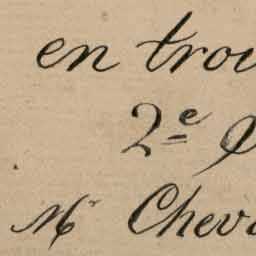 en trou
2e
Mr Cheva